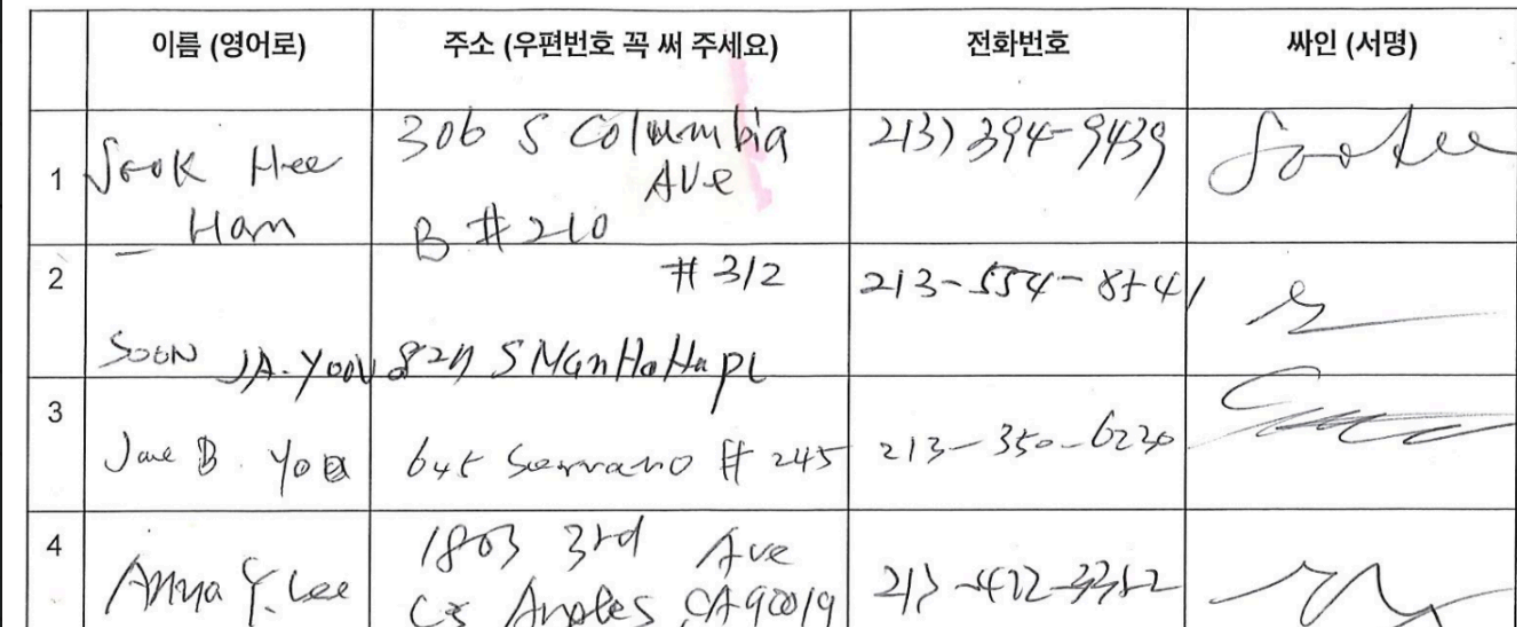 이름 (영어로) 주소 (우편번호 꼭 써 주세요) 전화번호 싸인 (서명)
1 Sook Hee Ham
306 S Columbia Ave
B #210
213) 394-9439
2 Soon JA. Yoon
#312
S Manhattan pl
213-554-8541
3 B. Yoo
645 Serrano #245
213-350-6230
4 Anna Y. Lee
1803 3rd Ave
Los Angeles, CA 90019
213-